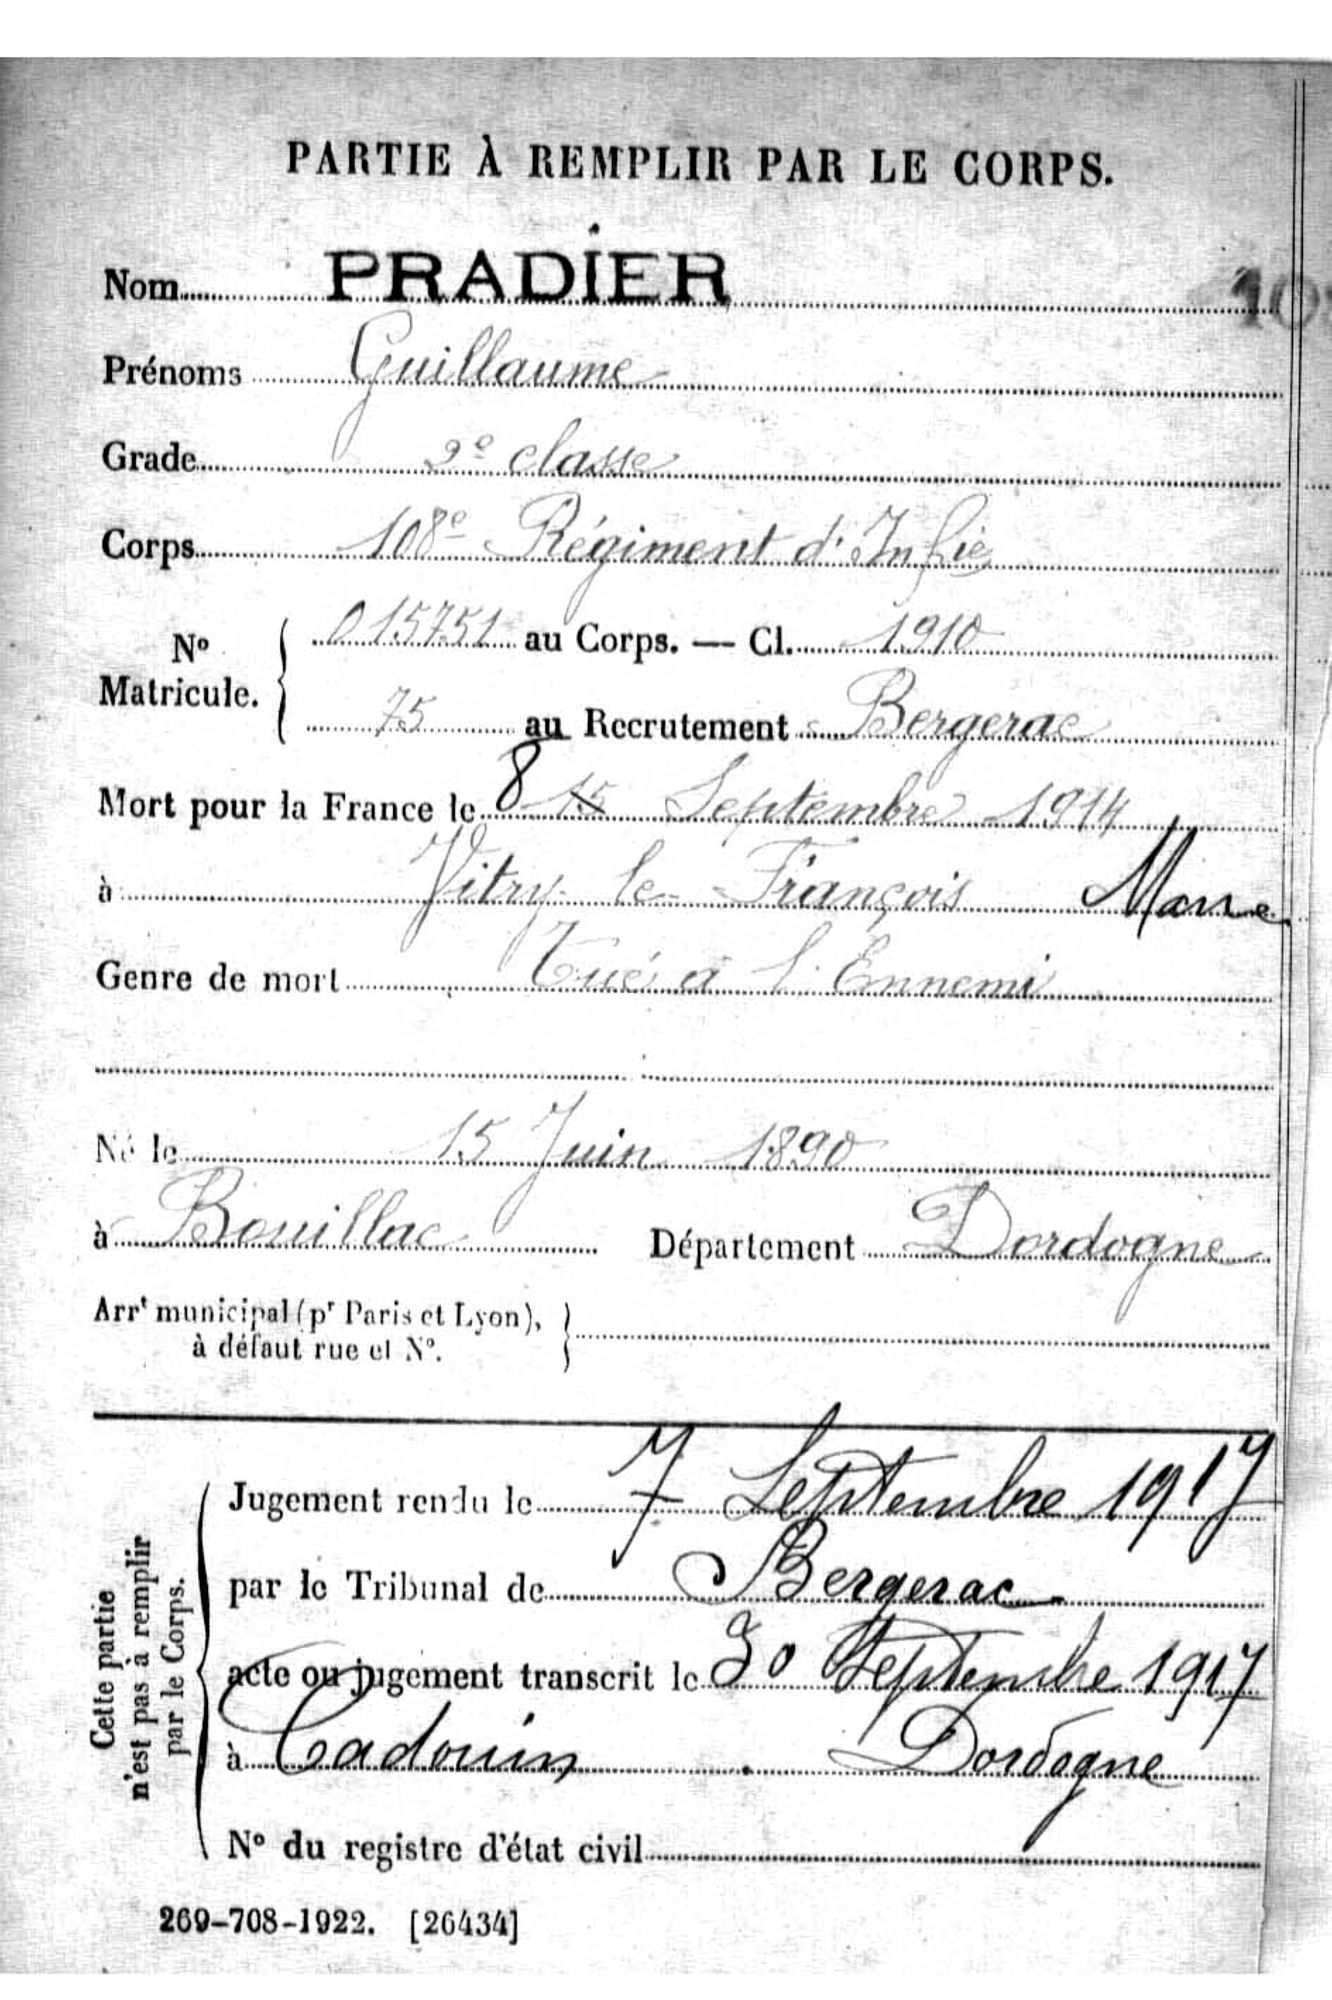 PARTIE À REMPLIR PAR LE CORPS.
Nom PRADIER
Prénoms Guillaume
Grade 2e classe
Corps 108e Régiment d'Infie
No Matricule. { 015751 au Corps. — Cl. 1910
75 au Recrutement Bergerac
Mort pour la France le 8 15 Septembre 1914
à Vitry-le-François Marne
Genre de mort Tué à l'Ennemi
Né le 15 Juin 1890
à Bouillac Département Dordogne
Arrt municipal (pr Paris et Lyon), à défaut rue et No. }
Cette partie n'est pas à remplir par le Corps.
Jugement rendu le 7 Septembre 1917
par le Tribunal de Bergerac
acte ou jugement transcrit le 30 Septembre 1917
à Cadouin Dordogne
No du registre d'état civil
269-708-1922. [26434]